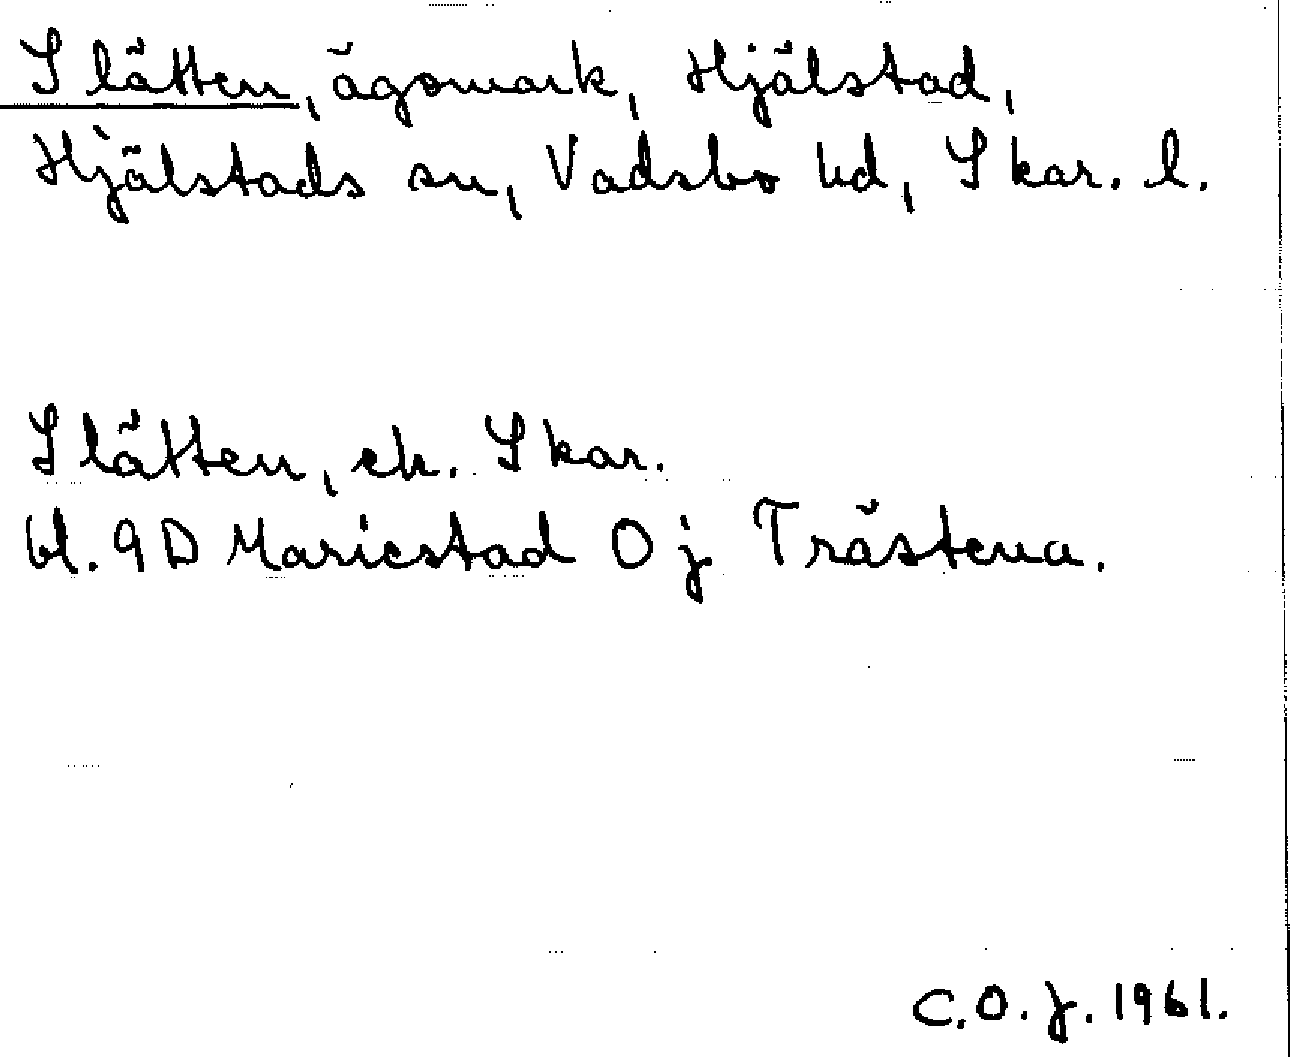 Slätten, ägomark, Hjälstad,
Hjälstads sn, Vadsbo hd, Skar. l.
Slätten, ek. Skar.
bl. 9D Mariestad 0 j Trästena.
C.O.J. 1961.